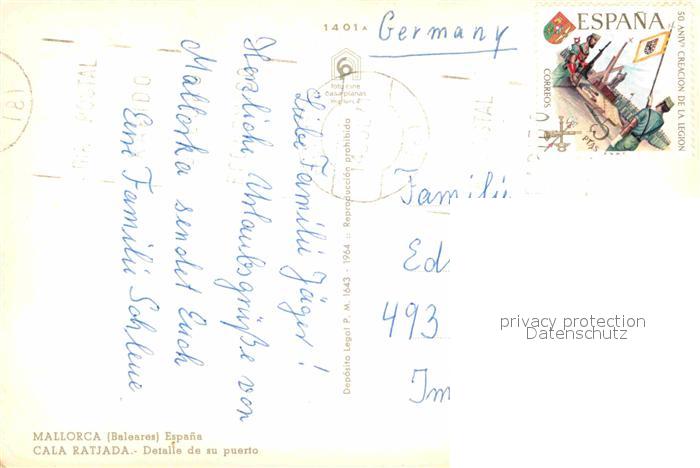 1401 A
Germany
ESPAÑA
50 ANIVº CREACION DE LA LEGION
CORREOS
5 PTAS
foto cine
casa planas
Liebe Familie Jäger!
Herzliche Urlaubsgrüße von
Mallorka sendet Euch
Eure Familie Schleue.
Depósito Legal P. M. 1643 - 1964 :: Reproducción prohibida
Familie
Ed
493
Im
privacy protection
Datenschutz
MALLORCA (Baleares) España
CALA RATJADA.- Detalle de su puerto